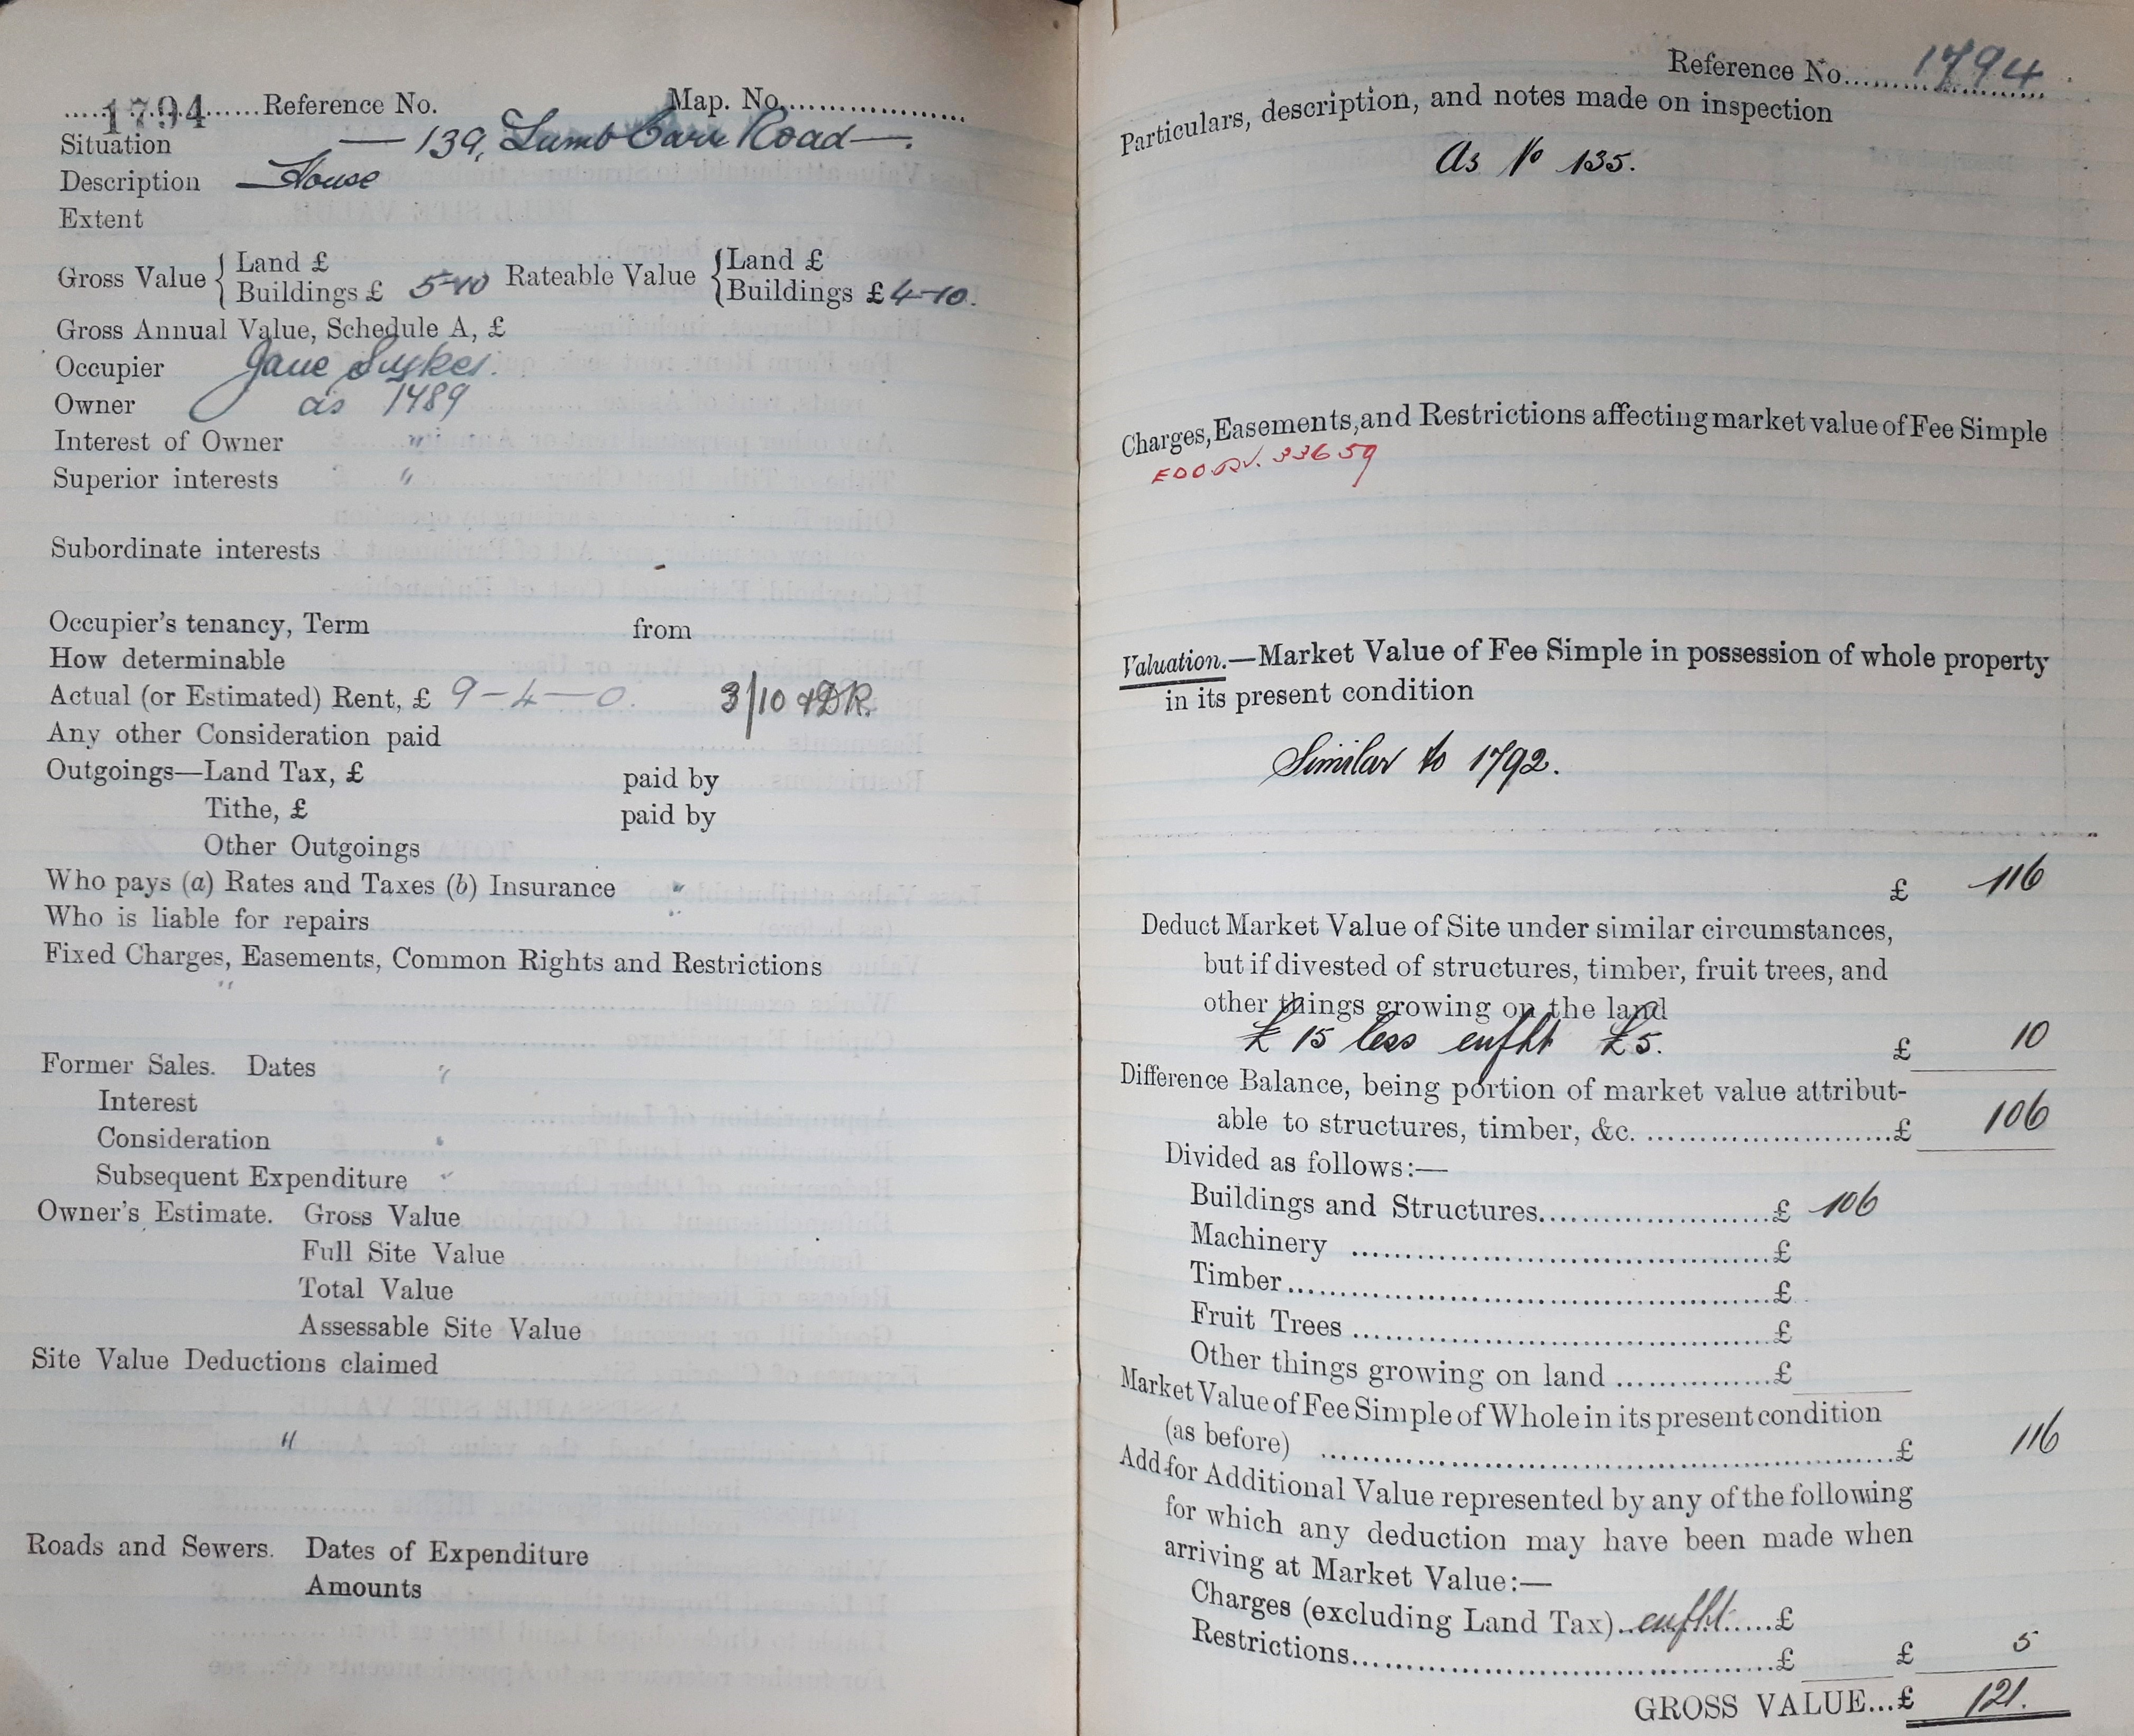 1794 Reference No. Map. No.
Situation — 139, Lumb Carr Road —.
Description — House
Extent
Gross Value { Land £ Rateable Value { Land £
Buildings £ 5-10 Buildings £ 4-10.
Gross Annual Value, Schedule A, £
Occupier Jane Sykes.
Owner as 1489
Interest of Owner "
Superior interests "
Subordinate interests
Occupier's tenancy, Term from
How determinable
Actual (or Estimated) Rent, £ 9-4-0. 3/10 &DR.
Any other Consideration paid
Outgoings—Land Tax, £ paid by
Tithe, £ paid by
Other Outgoings
Who pays (a) Rates and Taxes (b) Insurance "
Who is liable for repairs "
Fixed Charges, Easements, Common Rights and Restrictions
"
Former Sales. Dates "
Interest
Consideration "
Subsequent Expenditure "
Owner's Estimate. Gross Value
Full Site Value
Total Value
Assessable Site Value
Site Value Deductions claimed
"
Roads and Sewers. Dates of Expenditure
Amounts
Reference No. 1794
Particulars, description, and notes made on inspection
As No 135.
Charges, Easements, and Restrictions affecting market value of Fee Simple
33659
Valuation.—Market Value of Fee Simple in possession of whole property
in its present condition
Similar to 1792.
£ 116
Deduct Market Value of Site under similar circumstances,
but if divested of structures, timber, fruit trees, and
other things growing on the land
£15 less enfht £5. £ 10
Difference Balance, being portion of market value attribut-
able to structures, timber, &c. £ 106
Divided as follows:—
Buildings and Structures £ 106
Machinery £
Timber £
Fruit Trees £
Other things growing on land £
Market Value of Fee Simple of Whole in its present condition
(as before) £ 116
Add for Additional Value represented by any of the following
for which any deduction may have been made when
arriving at Market Value:—
Charges (excluding Land Tax) enfht £
Restrictions £ £ 5
GROSS VALUE...£ 121.